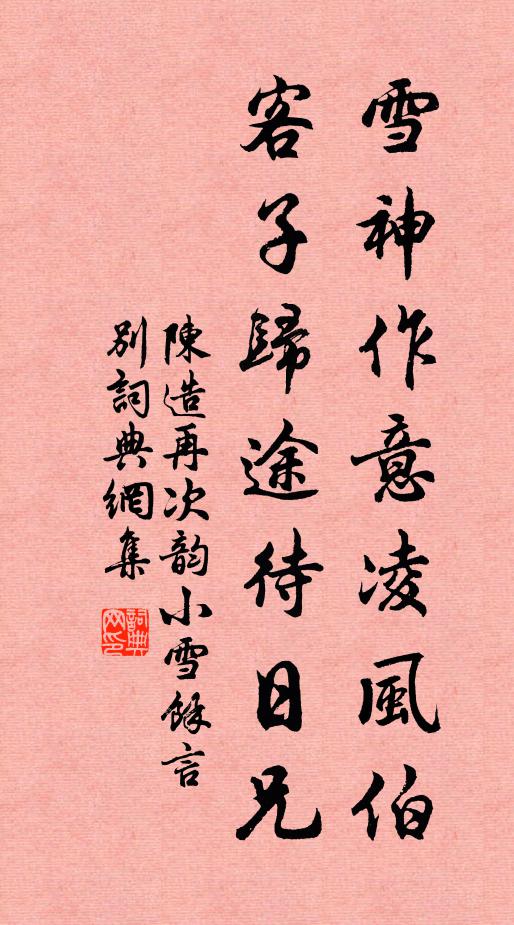 雪神作意凌風伯
客子歸途待日兄
陳造再次韵小雪餘言
別詞典網集
詞典網印